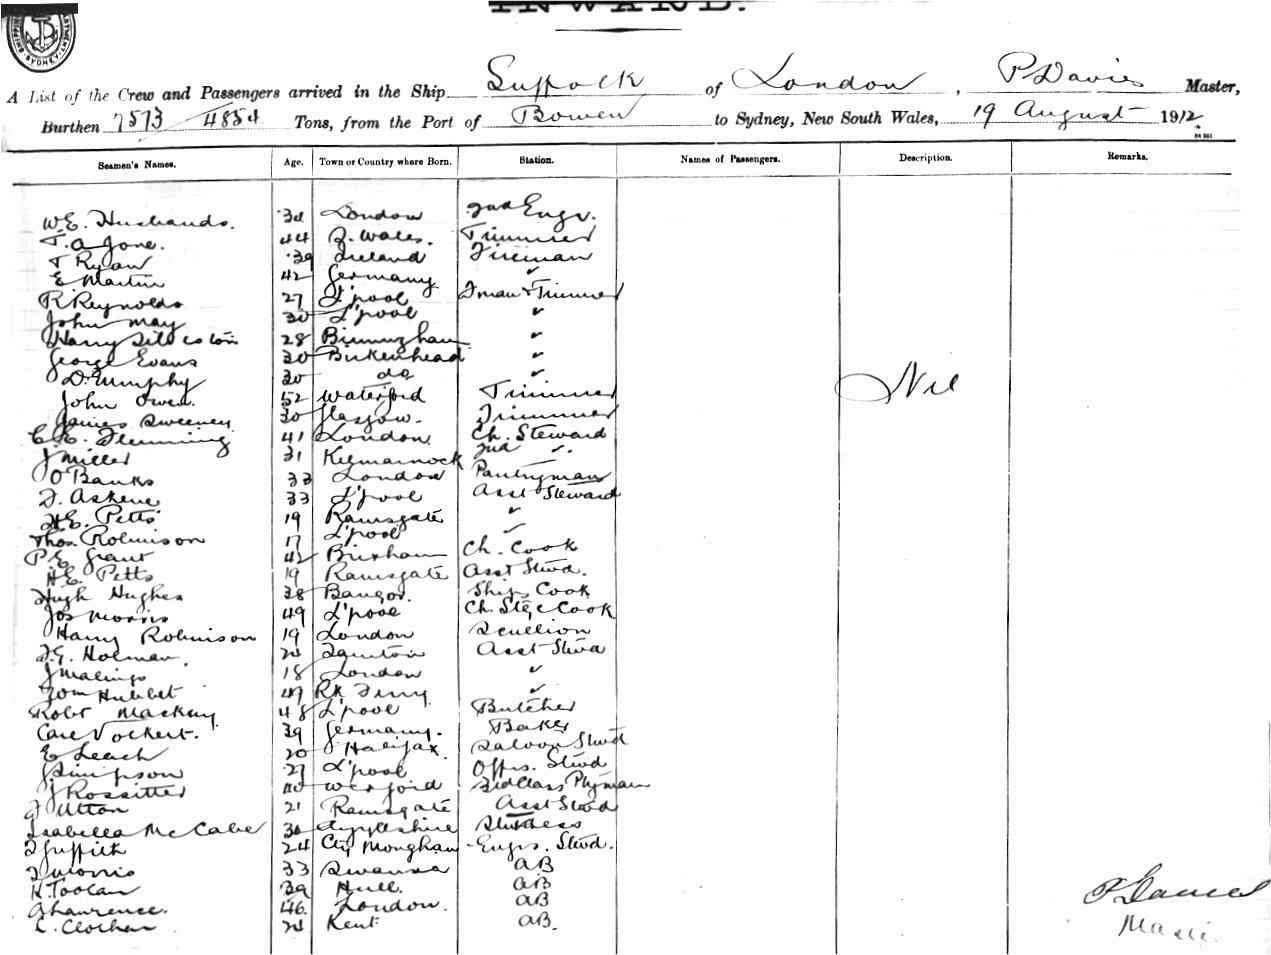 INWARD.
A List of the Crew and Passengers arrived in the Ship Suffolk of London, P Davies Master,
Burthen 7573/4854 Tons, from the Port of Bowen to Sydney, New South Wales, 19 August 1912
Seamen's Names. Age. Town or Country where Born. Station. Names of Passengers. Description. Remarks.
W.E. Husbands. London 2nd Engr.
T. A Jone. 44 S. Wales. Trimmer
T Ryan 39 Ireland Fireman
E Martin 42 Germany ✓
R Reynolds 27 L'pool Fman & Trimmer
John May 30 L'pool ✓
Harry 28 Birmingham ✓
George Evans 30 Birkenhead ✓
D. Murphy 30 do ✓
John Owen. 52 Waterford Trimmer
James Sweeney 30 Glasgow. Trimmer
C. E. Flemming 41 London Ch. Steward
J Miller 31 Kilmarnock 2nd ✓.
O Banks 33 London Pantryman
F. Askene 33 L'pool Asst Steward
H.E. Petts 19 Ramsgate ✓
Thos. Robinson 17 L'pool ✓
P.E. Grant 42 Brixham Ch. Cook
H.E. Petts 19 Ramsgate Asst Stwd.
Hugh Hughes 38 Bangor. Ships Cook
Jos Morris 49 L'pool Ch. Stge Cook
Harry Robinson 19 London Scullion
F.G. Holman. Taunton Asst Stwd
J Malings 18 London ✓
Tom Hubbet 49 Rk Ferry ✓
Robt Mackay 48 L'pool Butcher
Carl Vockert. 39 Germany. Baker
E Leach 20 Halifax Saloon Stwd
J Simpson 27 L'pool Offrs. Stwd
J Rossitter 40 Wexford 3rd Class Ptyman
F Utton 21 Ramsgate Asst Stwd
Isabella McCabe 30 Argyllshire Stwdess
J Griffith 24 Cty Monghan Engrs. Stwd.
J Morris 33 Swansea AB
H. Toolan 39 Hull. AB
A Lawrence. 46. London. AB
Kent AB.
Nil
P Davies
Master